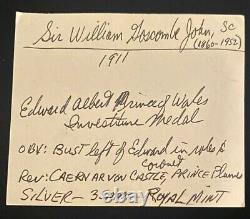 Sir William Goscombe John, Sc
(1860-1952)
1911
Edward Albert Prince of Wales
Investiture Medal
OBV: BUST left of Edward in robes &
coronet
Rev: CAERNARVON CASTLE, PRINCE Plumes
SILVER - ROYAL MINT